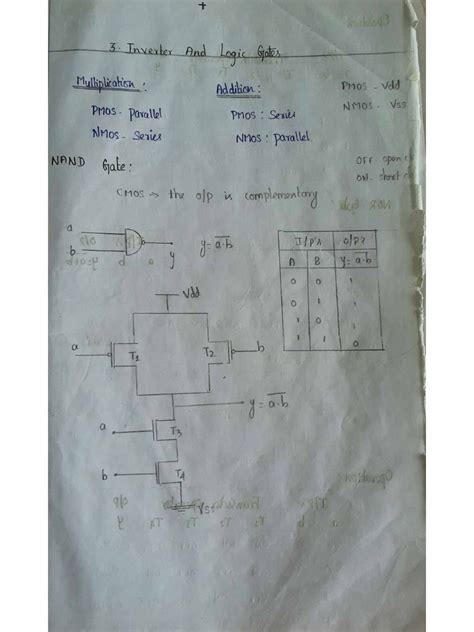 3. Inverter And Logic Gates
Multiplication :
PMOS - Parallel
NMOS - Series
Addition :
PMOS : Series
NMOS : Parallel
PMOS - Vdd
NMOS - Vss
OFF open
ON - short
NAND Gate :
CMOS → the o/p is complementary
a
b
y
y = a̅·̅b̅
I/Ps O/Ps
A B y = a̅·̅b̅
0 0 1
0 1 1
1 0 1
1 1 0
Vdd
a T1 T2 b
y = a̅·̅b̅
a T3
b T4
Vss